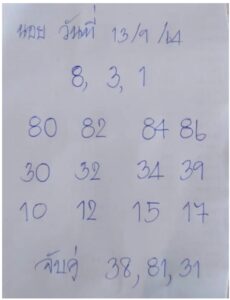 หอย วันที่ 13/9/64
8, 3, 1
80 82 84 86
30 32 34 39
10 12 15 17
จับคู่ 38, 81, 31